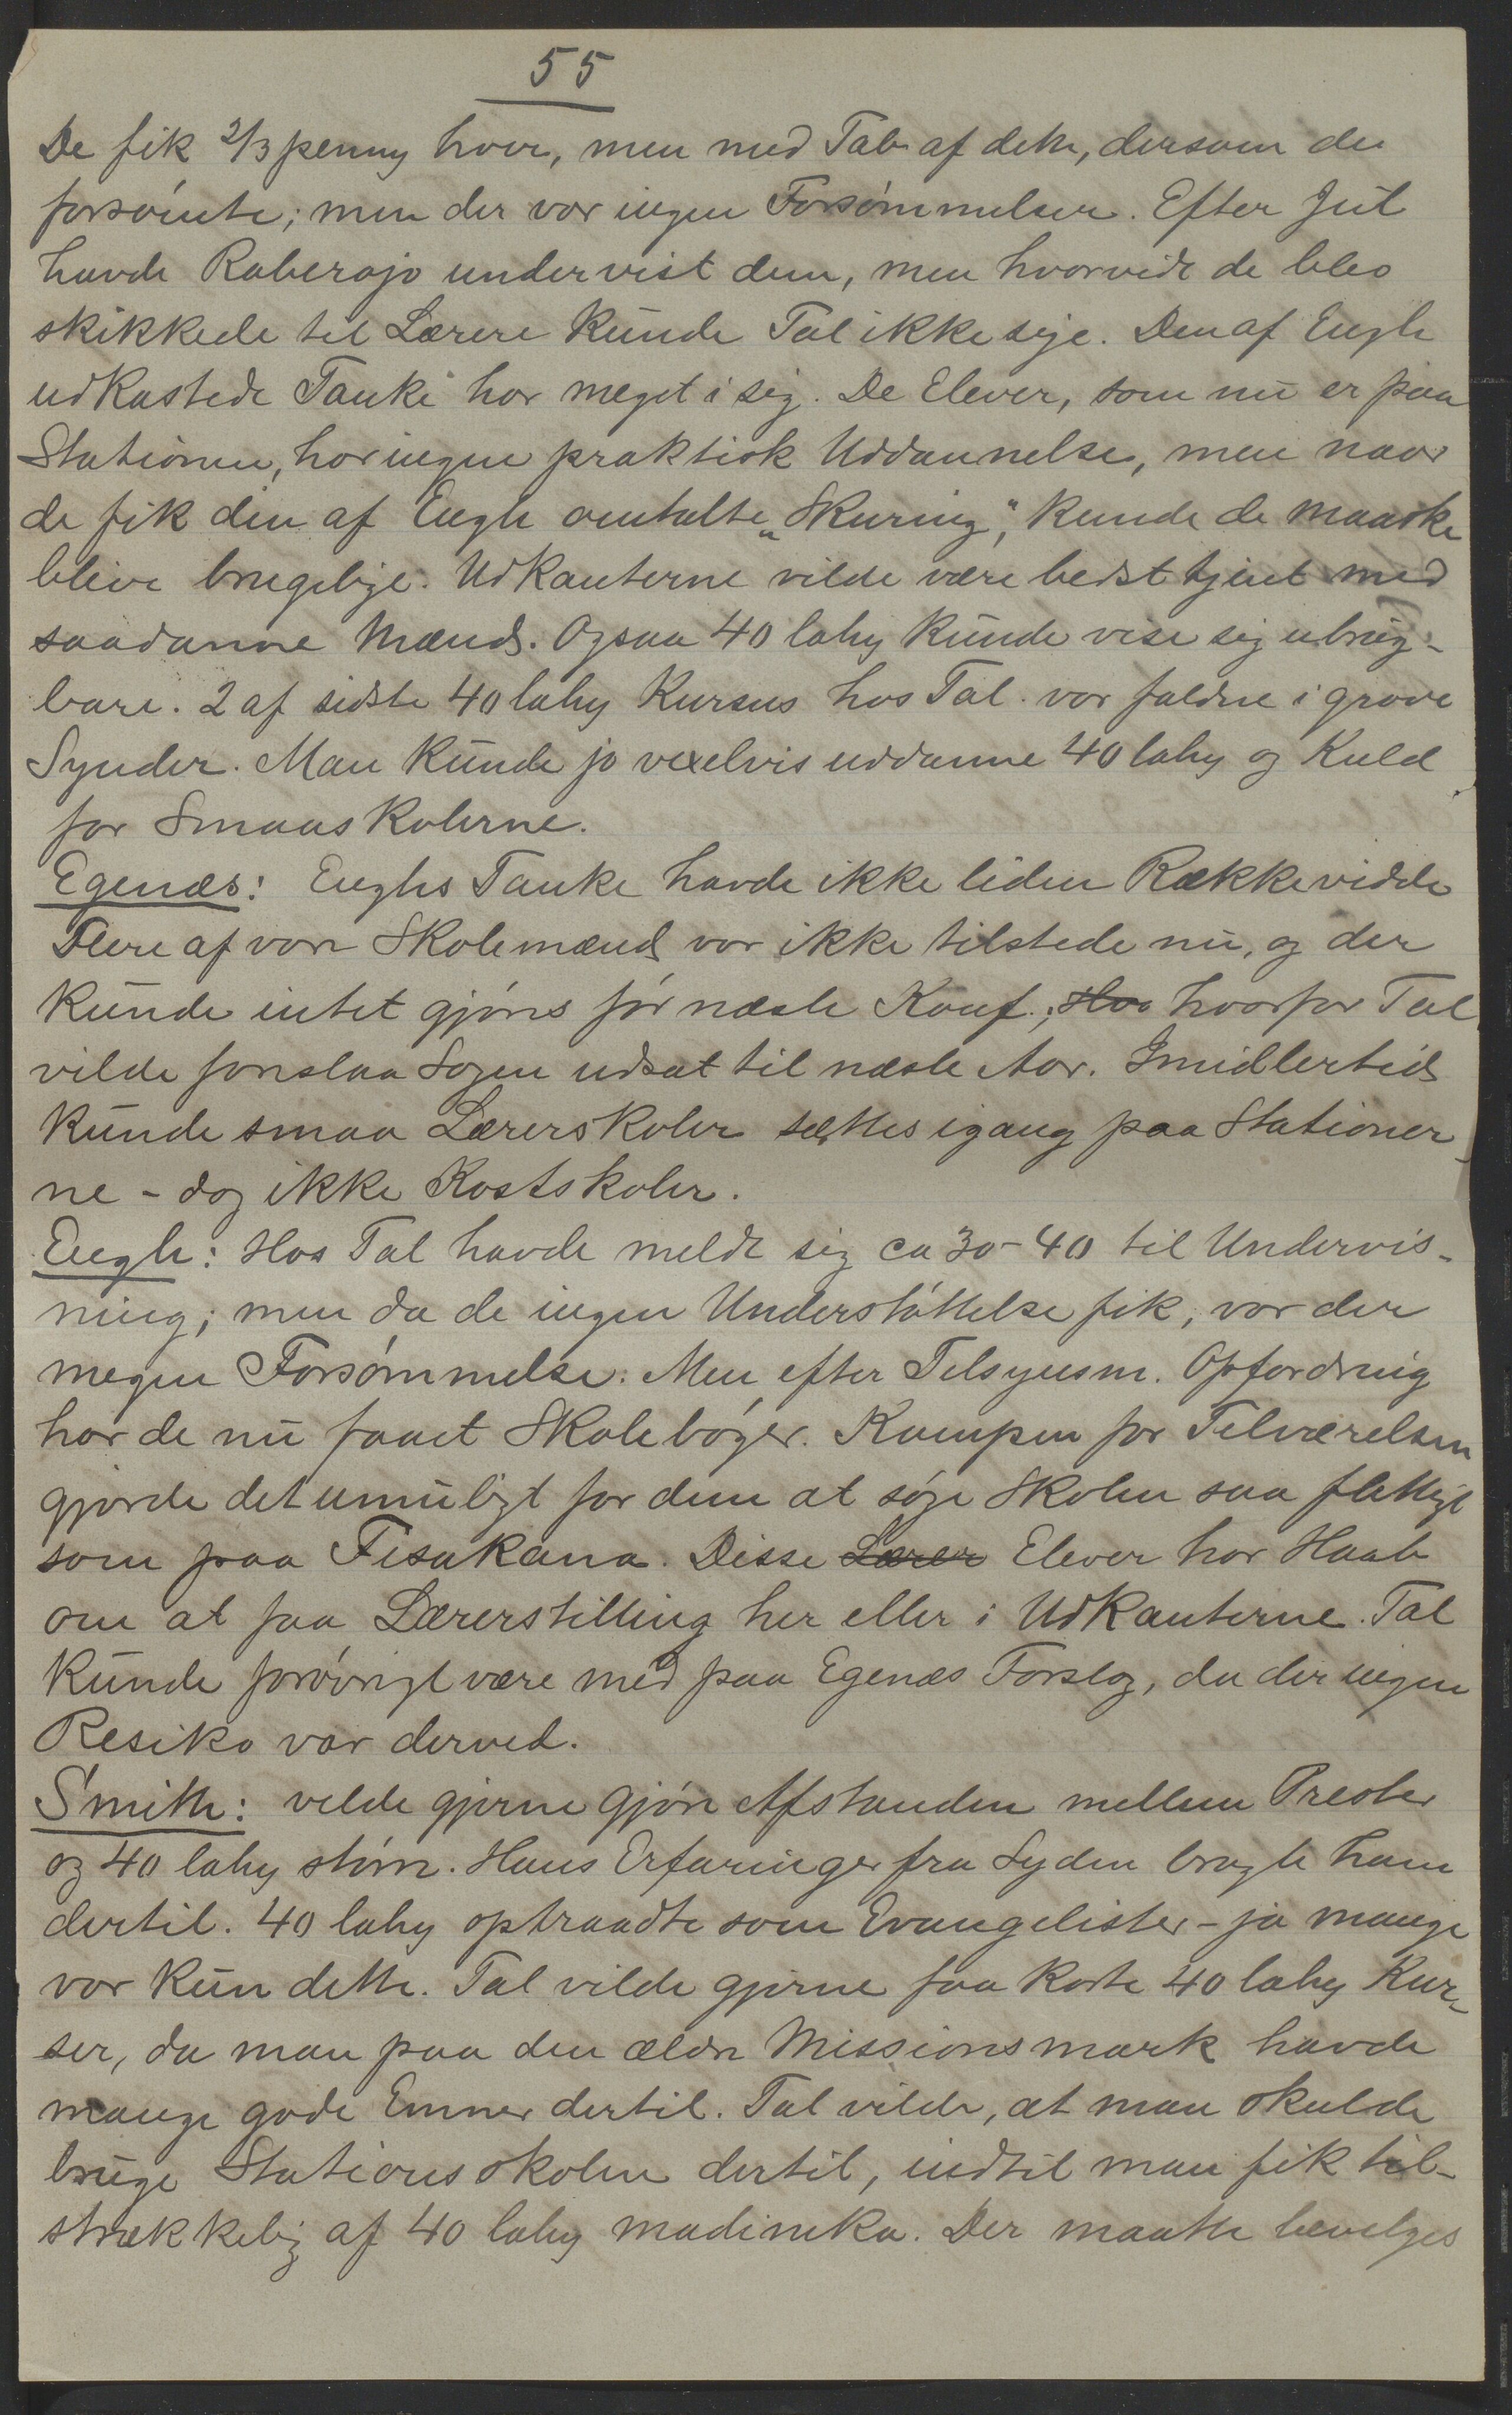 55
De fik 2/3 penny hver, men med Tab af dette, dersom de
forsömte; men der var ingen Forsømmelser. Efter Jul
havde Raberojo undervist dem, men hvorvidt de blev
skikkede til Lærere kunde Tal ikke sige. Den af Engh
udkastede Tanke har meget i sig. De Elever, som nu er paa
Stationen, har ingen praktisk Uddannelse, men naar
de fik den af Engh omtalte „Skuring", kunde de maaske
blive brugelige. Udkanterne vilde være bedst tjent med
saadanne Mænd. Ogsaa 40 lahy kunde vise sig ubrug-
bare. 2 af sidste 40 lahy Kursus hos Tal. var faldne i grove
Synder. Man kunde jo vexelvis uddanne 40 lahy og Kuld
for Smaaskolerne.
Egenæs: Enghs Tanke havde ikke liden Rækkevidde
Flere af vore Skolemænd var ikke tilstede nu, og der
kunde intet gjöres för næste Konf.; Hvo hvorfor Tal
vilde foreslaa Sagen udsat til næste Aar. Imidlertid
kunde smaa Lærerskoler sættes igang paa Stationer
ne - dog ikke Kostskoler.
Engh: Hos Tal havde meldt sig ca 30-40 til Undervis-
ning; men da de ingen Understöttelse fik, var der
megen Forsömmelse. Men efter Tilsynsm. Opfordring
har de nu faaet Skolebøger. Kampen for Tilværelsen
gjorde det umuligt for dem at søge Skolen saa flittigt
som paa Fisakana. Disse Lærer Elever har Haab
om at faa Lærerstilling her eller i Udkanterne. Tal
kunde forövrigt være med paa Egenæs Forslag, da der ingen
Resiko var derved.
Smith: vilde gjerne gjöre Afstanden mellem Prester
og 40 lahy större. Hans Erfaringer fra Syden bragte ham
dertil. 40 lahy optraadte som Evangelister - ja mange
var kun dette. Tal vilde gjerne faa korte 40 lahy Kur-
ser, da man paa den ældre Missionsmark havde
mange gode Emner dertil. Tal vilde, at man skulde
bruge Stationsskolen dertil, indtil man fik til-
strækkelig af 40 lahy madinika. Der maatte bevilges